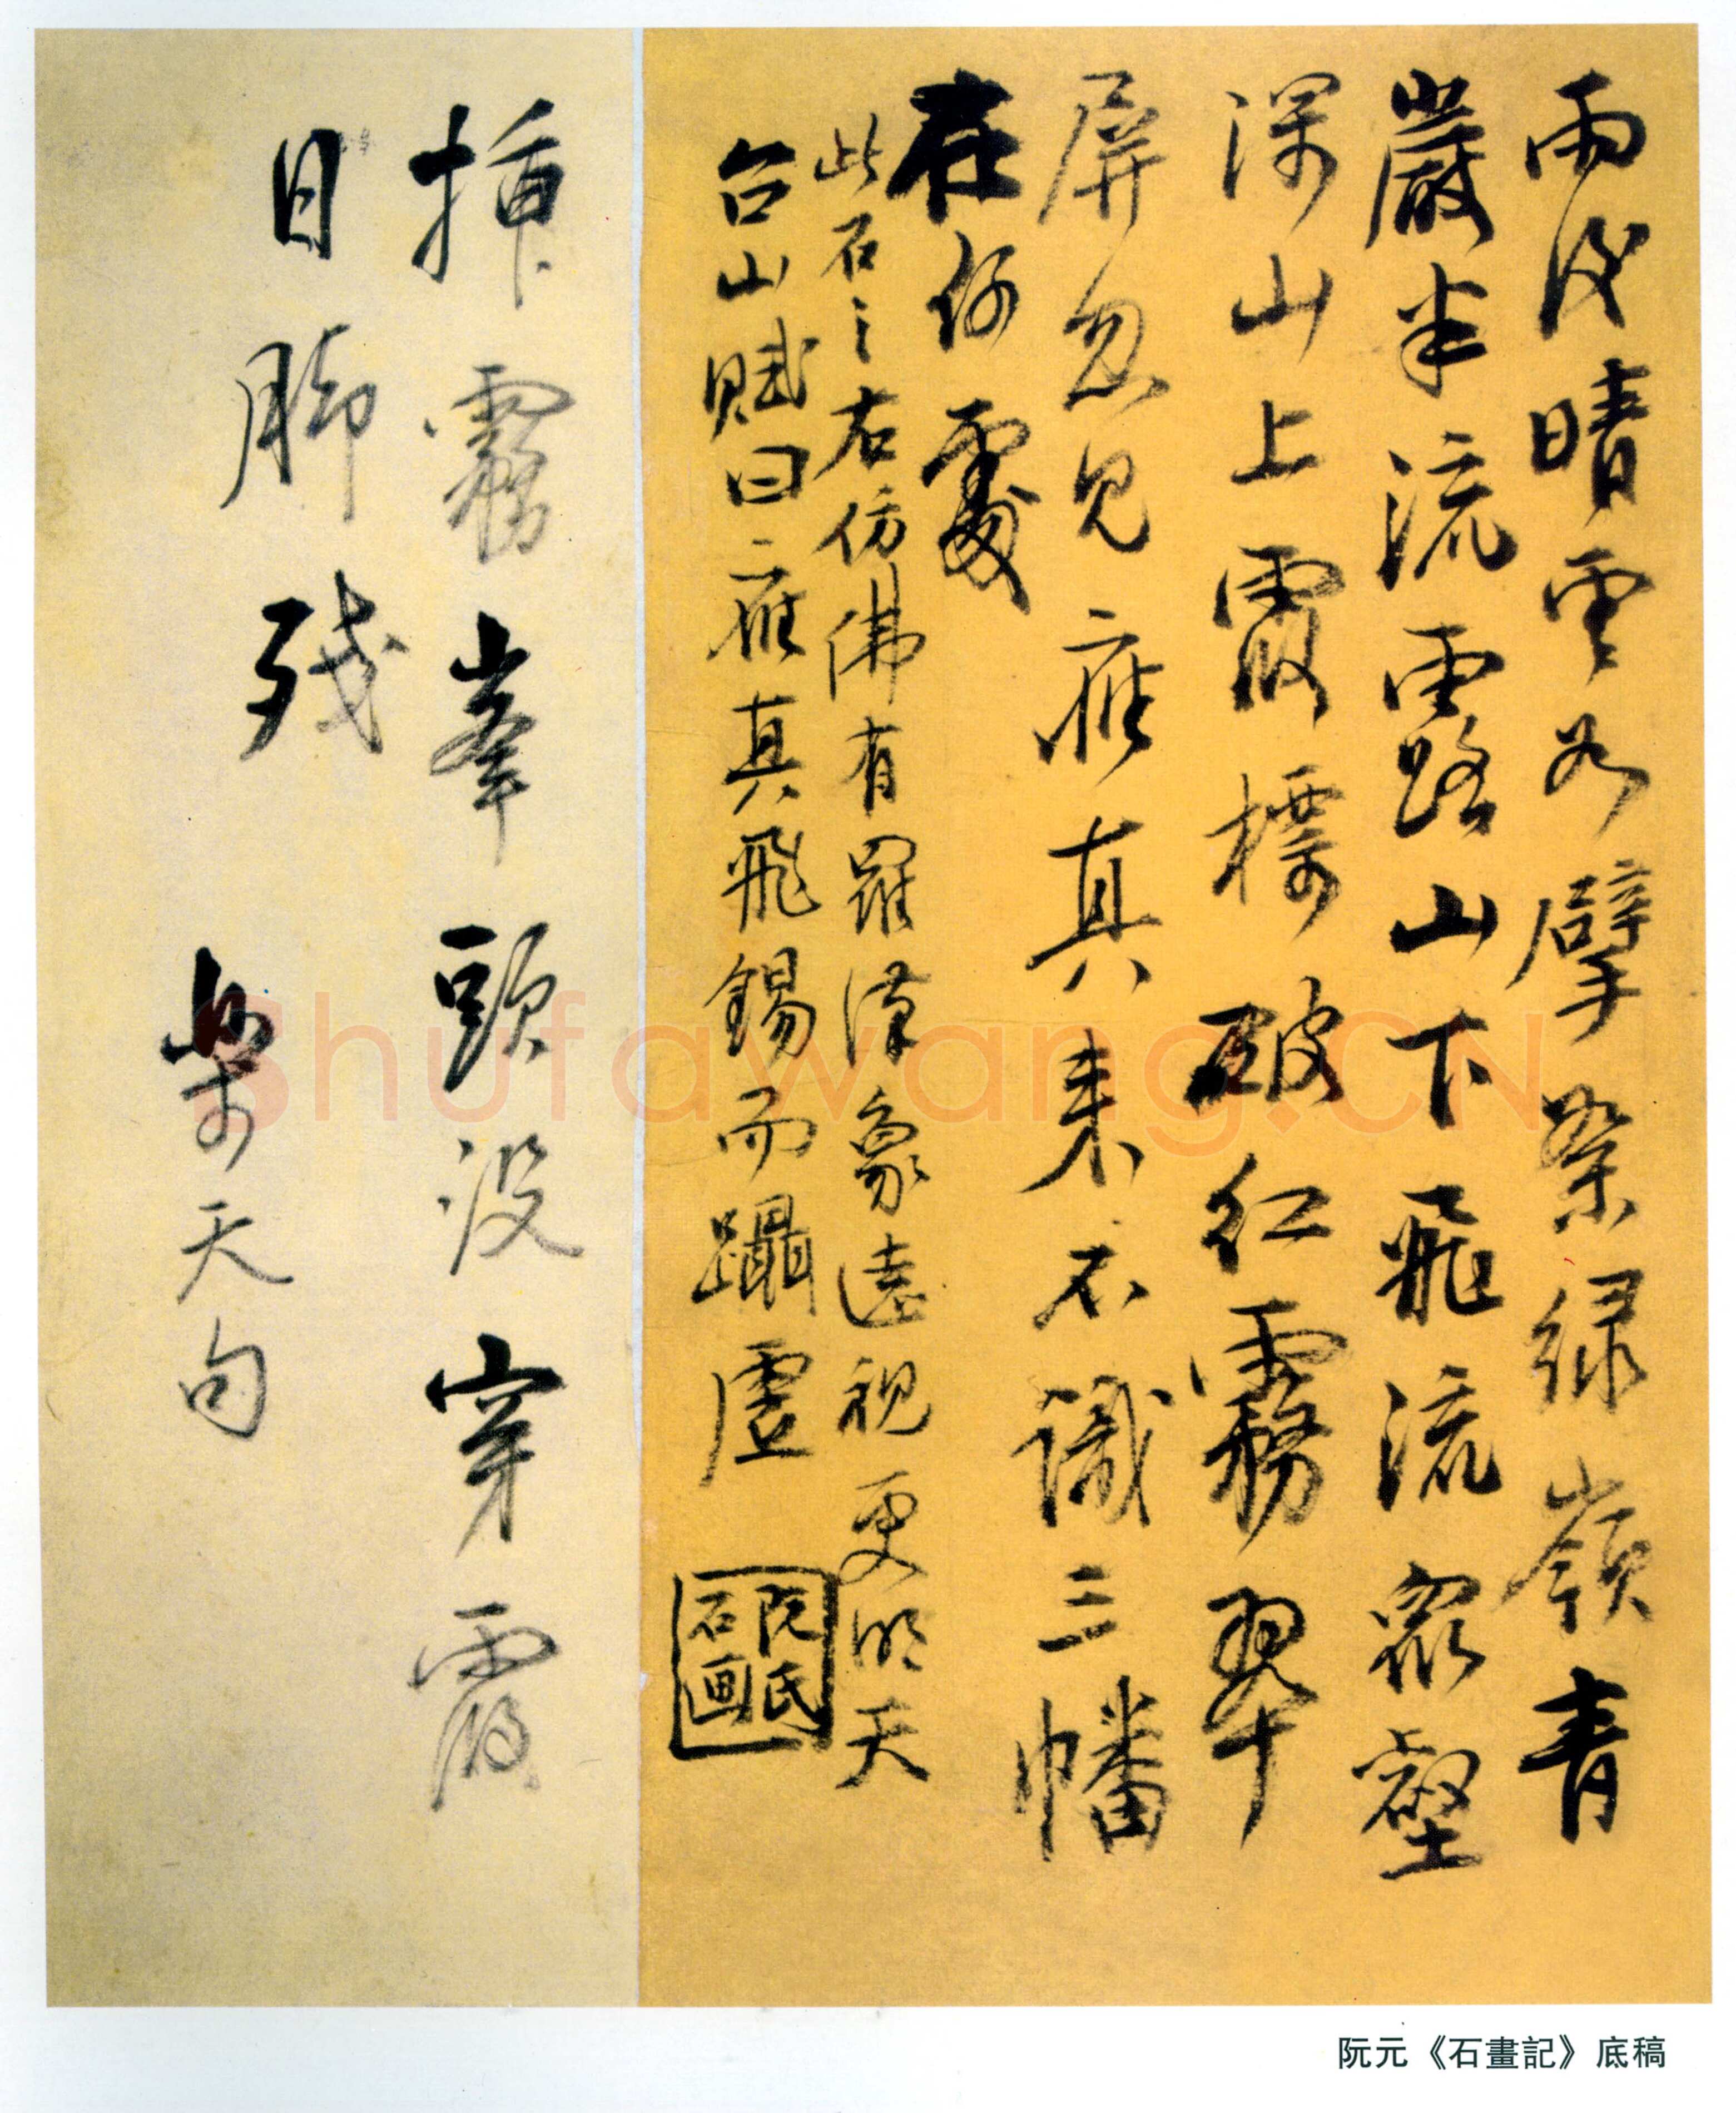 雨後晴雲如擘絮緑嶺青
巖半流露山下飛流眾壑
深山上霞標破紅霧翠
屏忽見應真来不識三幡
在何處
此石之右仿佛有羅漢象遠視更明天
台山賦曰應真飛錫而躡虛
阮氏
石画
插霧峯頭没穿霞
日脚残
樂天句
Shufawang.CN
阮元《石畫記》底稿